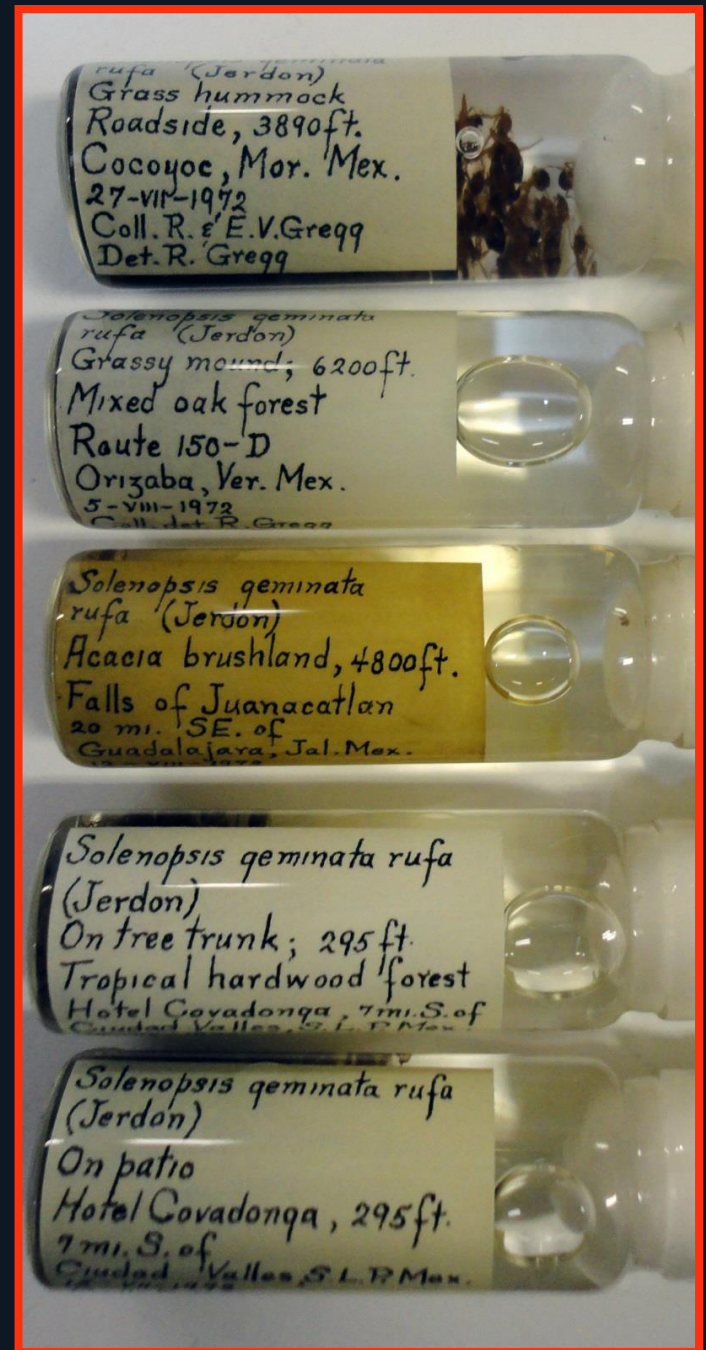 rufa (Jerdon)
Grass hummock
Roadside, 3890ft.
Cocoyoc, Mor. Mex.
27-VII-1972
Coll. R. & E.V. Gregg
Det. R. Gregg
Solenopsis geminata
rufa (Jerdon)
Grassy mound; 6200ft.
Mixed oak forest
Route 150-D
Orizaba, Ver. Mex.
5-VIII-1972
Coll. det. R. Gregg
Solenopsis geminata
rufa (Jerdon)
Acacia brushland, 4800ft.
Falls of Juanacatlan
20 mi. SE. of
Guadalajara, Jal. Mex.
Solenopsis geminata rufa
(Jerdon)
On tree trunk; 295 ft.
Tropical hardwood forest
Hotel Covadonga, 7mi. S. of
Ciudad Valles, S.L.P. Mex.
Solenopsis geminata rufa
(Jerdon)
On patio
Hotel Covadonga, 295ft.
7 mi. S. of
Ciudad Valles, S.L.P. Mex.